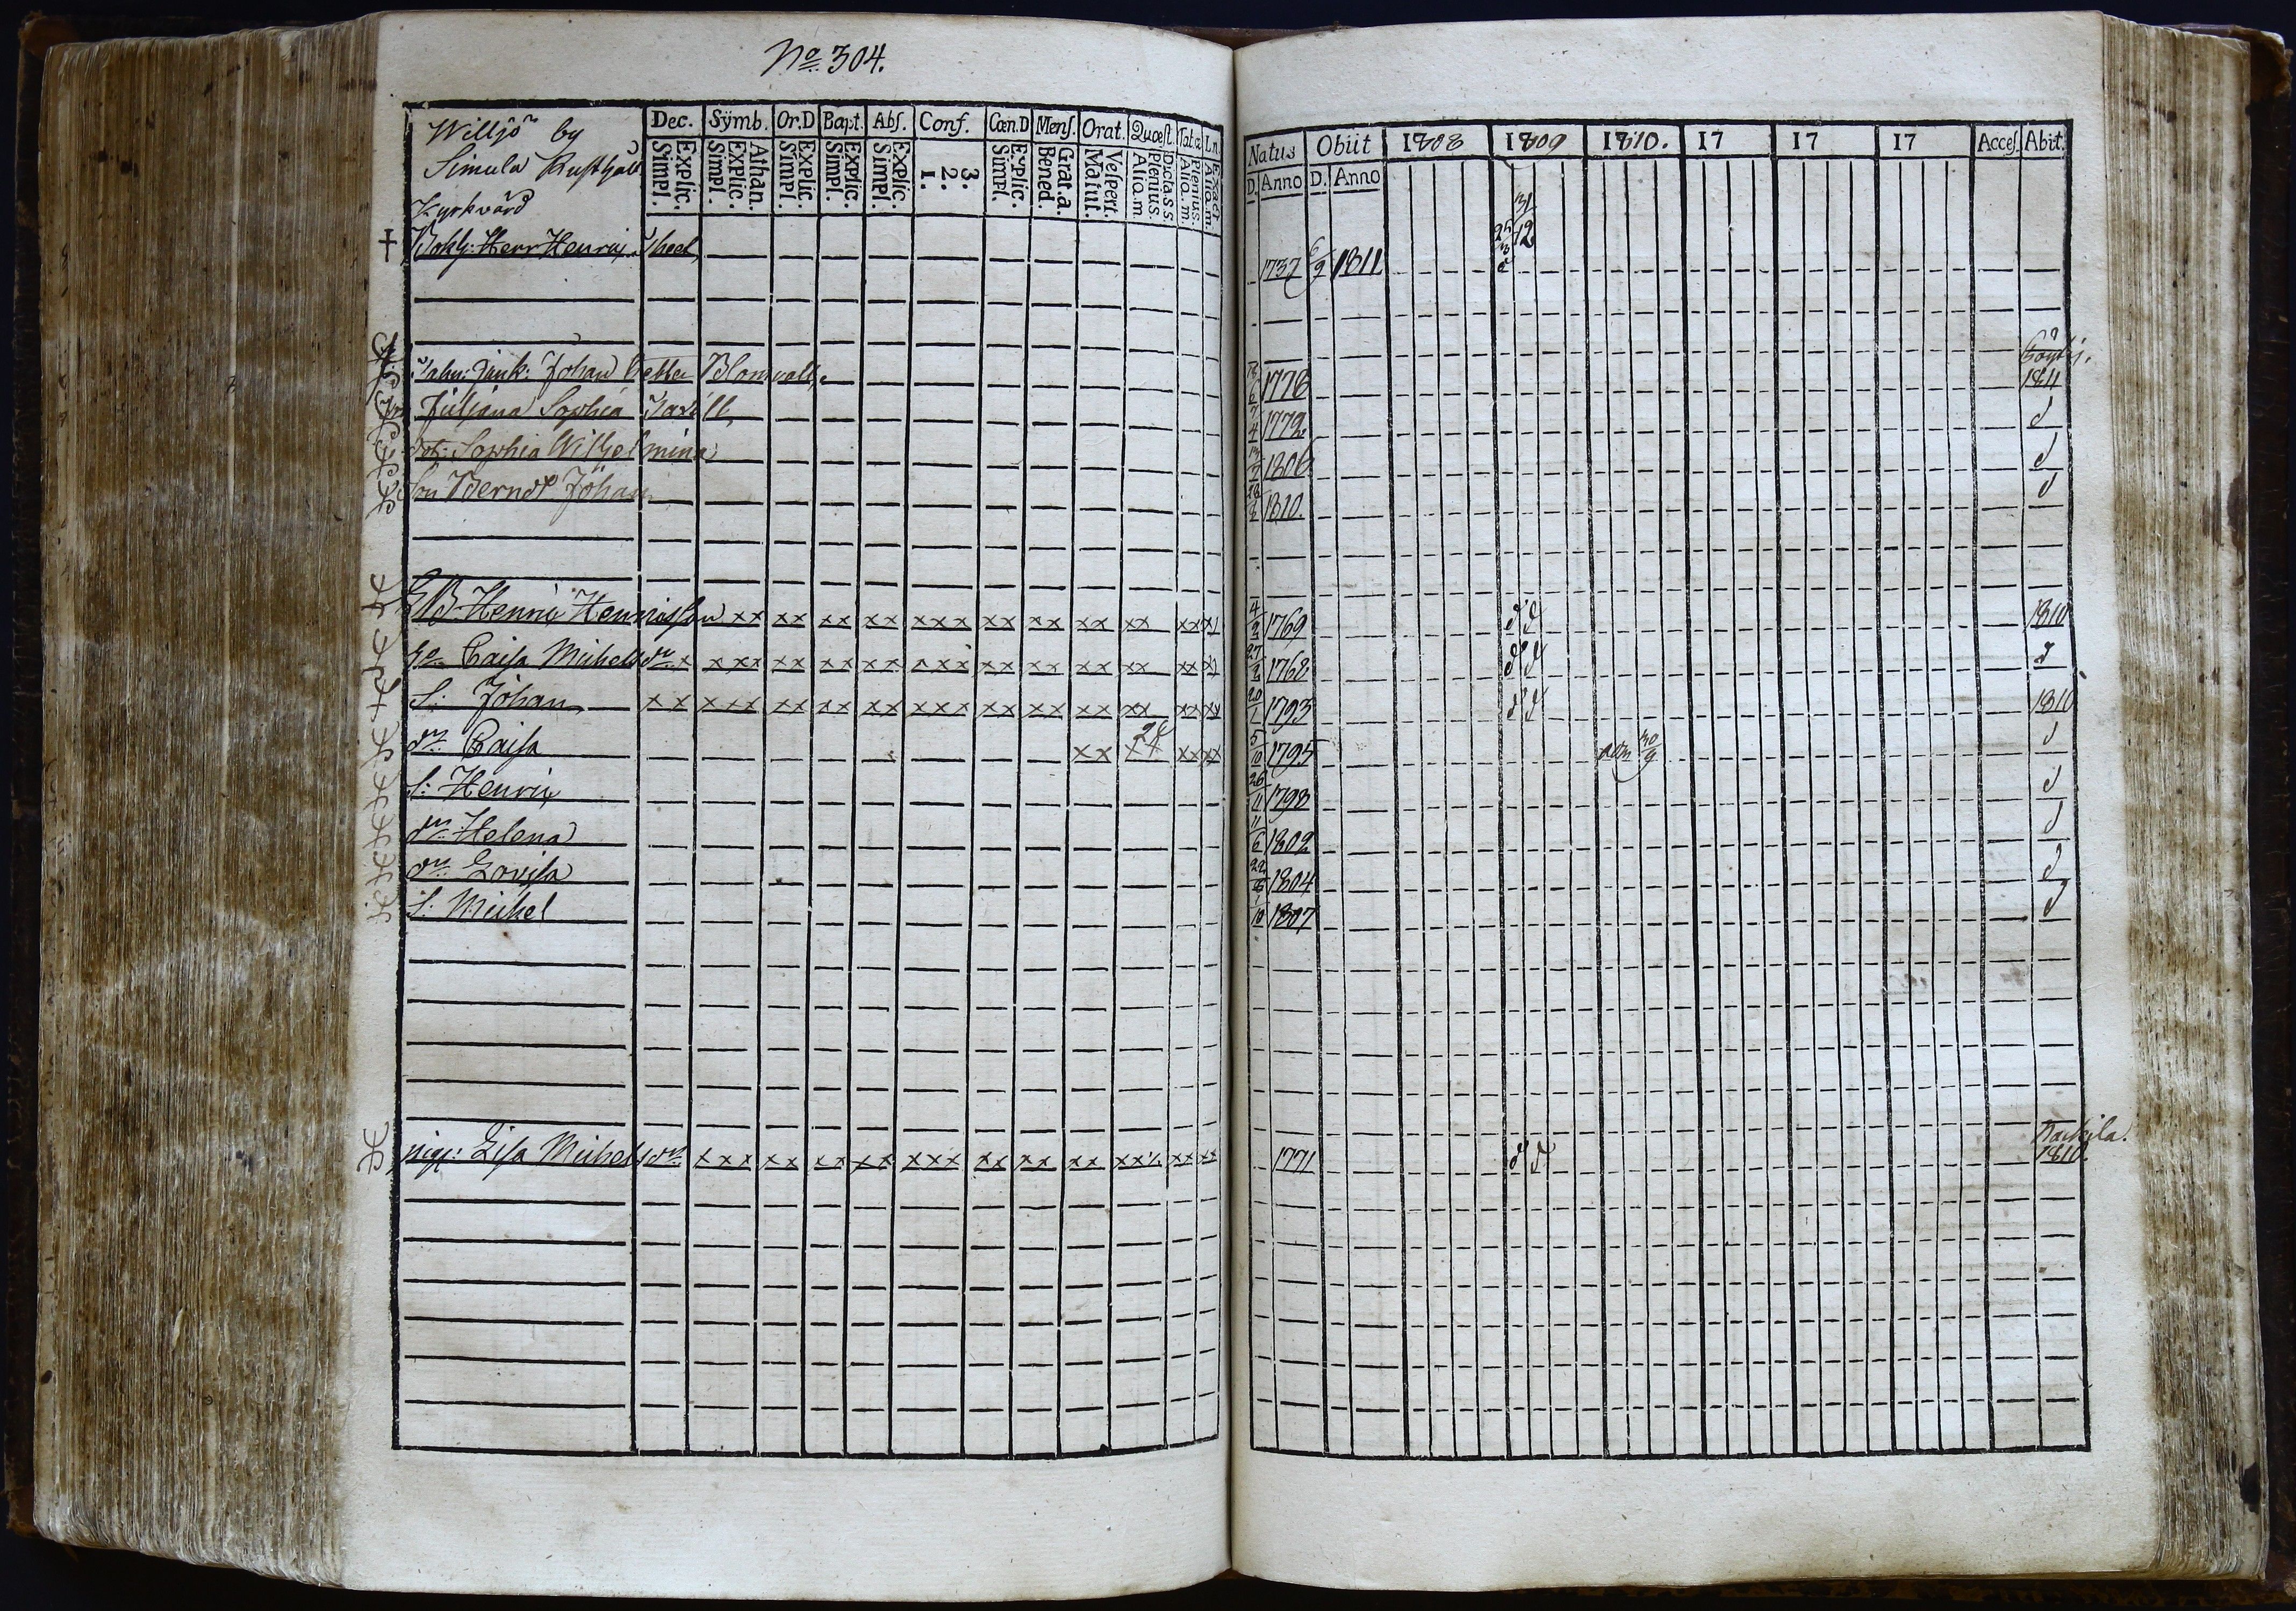 No. 304.
Willjö by
Simula Rusthåll
Kyrkvärd
Dec. Sÿmb. Or.D Bapt. Abſ. Conf. Cœn.D Menſ. Orat. Quœſt. Tab.œ Ln.
Explic. Simpl. Athan. Explic. Simpl. Explic. Simpl. Explic. Simpl. Explic. Simpl. 3. 2. 1. Explic. Simpl. Grat.a. Bened. Veſpert. Matut. Doctass. Plenius. Alio.m. Plenius. Alio.m. Exact. Alio.m.
Natus Obiit 1808 1809 1810. 17 17 17 Acceſ. Abit.
D. Anno D. Anno
† Bokh: Herr Henric 1737 6/9 1811 25/3 31/12
Johan Blomvall 1776 1811
Juliana Sophia 1772 d
dot: Sophia Wilhelmina 1806 d
Son Berndt Johan 1810 d
Henric Henricsson xx xx xx xx xxx xx xx xx xx xx xx 4/2 1769 d d 1810
Caisa Michelsdr x xxx xx xx xx xxx xx xx xx xx xx xx 27/2 1768 d d d
S: Johan xx xxx xx xx xx xxx xx xx xx xx xx xx 20/1 1793 d d 1810
dr Caisa xx xx xx xx 5/10 1795 adm 30/9 d
S: Henric 26/11 1798 d
dr Helena 11/6 1802 d
dr Lovisa 1804 d
S: Michel 1/10 1807 d
pig: Lisa Michelsdr xxx xx xx xx xxx xx xx xx xxx xx xx 1771 d d 1810